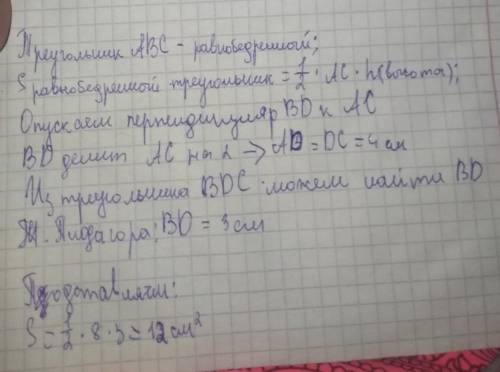 Треугольник ABC - равнобедренный;
S равнобедренной треугольник = 1/2 · AC · h(высота);
Опускаем перпендикуляр BD к AC
BD делит AC на 2 → AD = DC = 4 см
Из треугольника BDC можем найти BD
Т. Пифагора; BD = 3 см
Подставляем:
S = 1/2 · 8 · 3 = 12 см²